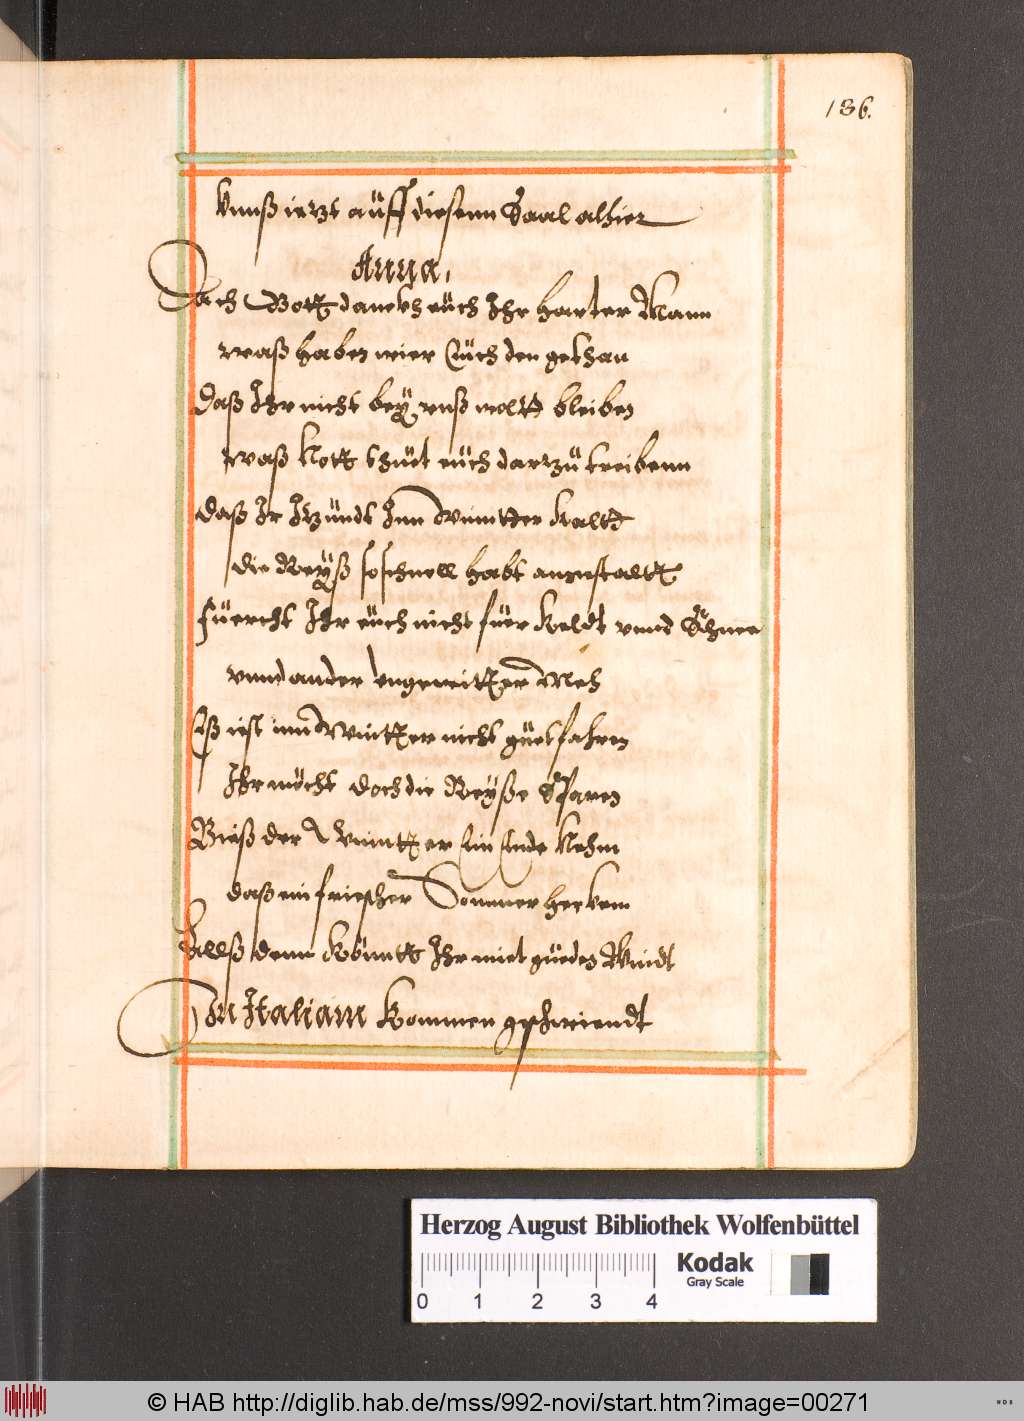 136.
Vnnß ietzt aüff diesenn Saal alhier
Anna,
Ach Gott danckh eüch Ihr harter Mann
waß haben wier Eüch den gethan
Daß Ihr nicht bey vnß woltt bleiben
waß Nott thüet eüch darzü treibenn
Daß Ir Itzündt Inn Winntter Kaltt
die Reyß so schnell habt angestaltt
füercht Ihr eüch nicht füer Keldt vnnd Schnee
vnnd ander vngewitter Meh
Eß iest inn Wintter nicht güet fahren
Ihr möcht doch die Reyße Sparen
Bieß der Winntter Ein Ende Nehm
daß ein friescher Sommer her kem
Allß denn Könntt Ihr miet güeden Windt
In Italiam Kommen geschwiendt
Herzog August Bibliothek Wolfenbüttel
Kodak
Gray Scale
0 1 2 3 4
© HAB http://diglib.hab.de/mss/992-novi/start.htm?image=00271